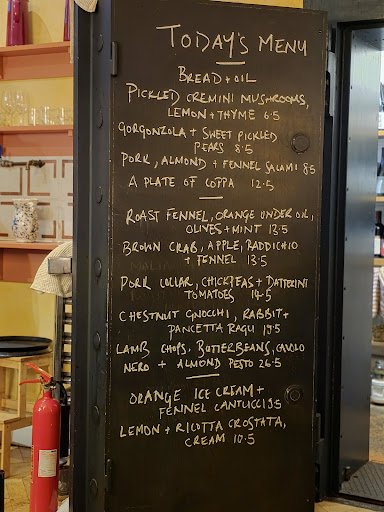 TODAY'S MENU
BREAD + OIL
PICKLED CREMINI MUSHROOMS,
LEMON + THYME 6.5
GORGONZOLA + SWEET PICKLED
PEARS 8.5
PORK, ALMOND + FENNEL SALAMI 8.5
A PLATE OF COPPA 12.5
ROAST FENNEL, ORANGE UNDER OIL,
OLIVES + MINT 13.5
BROWN CRAB, APPLE, RADDICHIO
+ FENNEL 13.5
PORK COLLAR, CHICKPEAS + DATTERINI
TOMATOES 14.5
CHESTNUT GNOCCHI, RABBIT +
PANCETTA RAGU 19.5
LAMB CHOPS, BUTTERBEANS, CAVOLO
NERO + ALMOND PESTO 26.5
ORANGE ICE CREAM +
FENNEL CANTUCCI 9.5
LEMON + RICOTTA CROSTATA,
CREAM 10.5